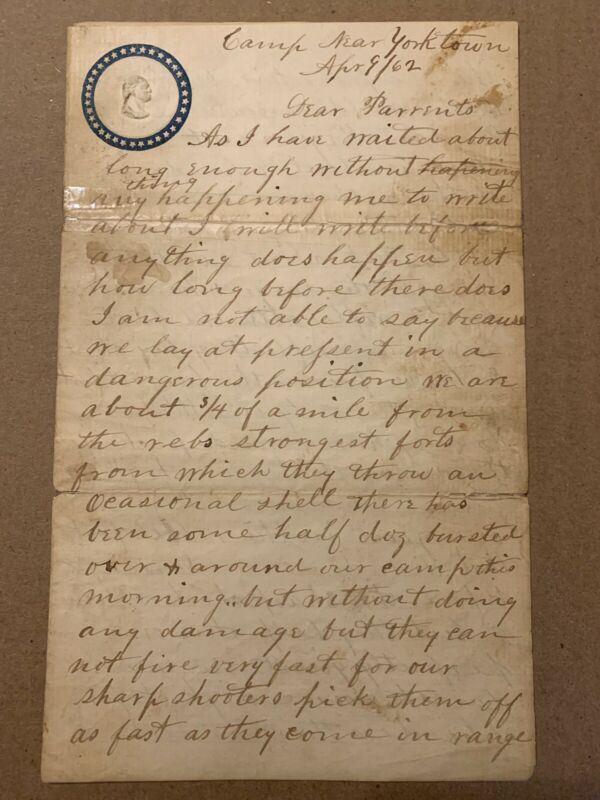 Camp Near Yorktown
Apr 9/62
Dear Parrents
As I have waited about
long enough without hapening
any thing happening me to write
about I will write before
anything does happen but
how long before there does
I am not able to say because
we lay at present in a
dangerous position we are
about 3/4 of a mile from
the rebs strongest forts
from which they throw an
Ocasional shell there has
been some half doz bursted
over & around our camp this
morning.. but without doing
any damage but they can
not fire very fast for our
sharp shooters pick them off
as fast as they come in range